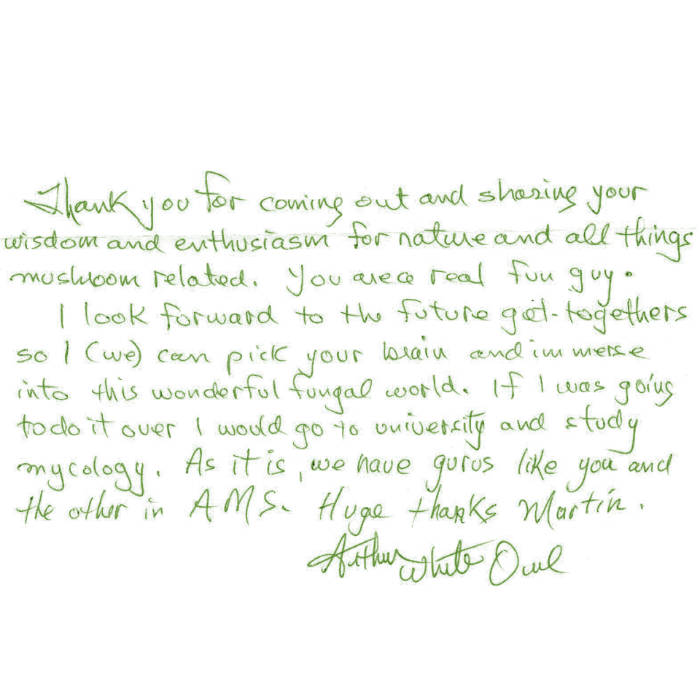 Thank you for coming out and sharing your
wisdom and enthusiasm for nature and all things
mushroom related. You are a real fun guy.
I look forward to the future get-togethers
so I (we) can pick your brain and immerse
into this wonderful fungal world. If I was going
to do it over I would go to university and study
mycology. As it is, we have gurus like you and
the other in AMS. Huge thanks Martin.
Arthur White Owl